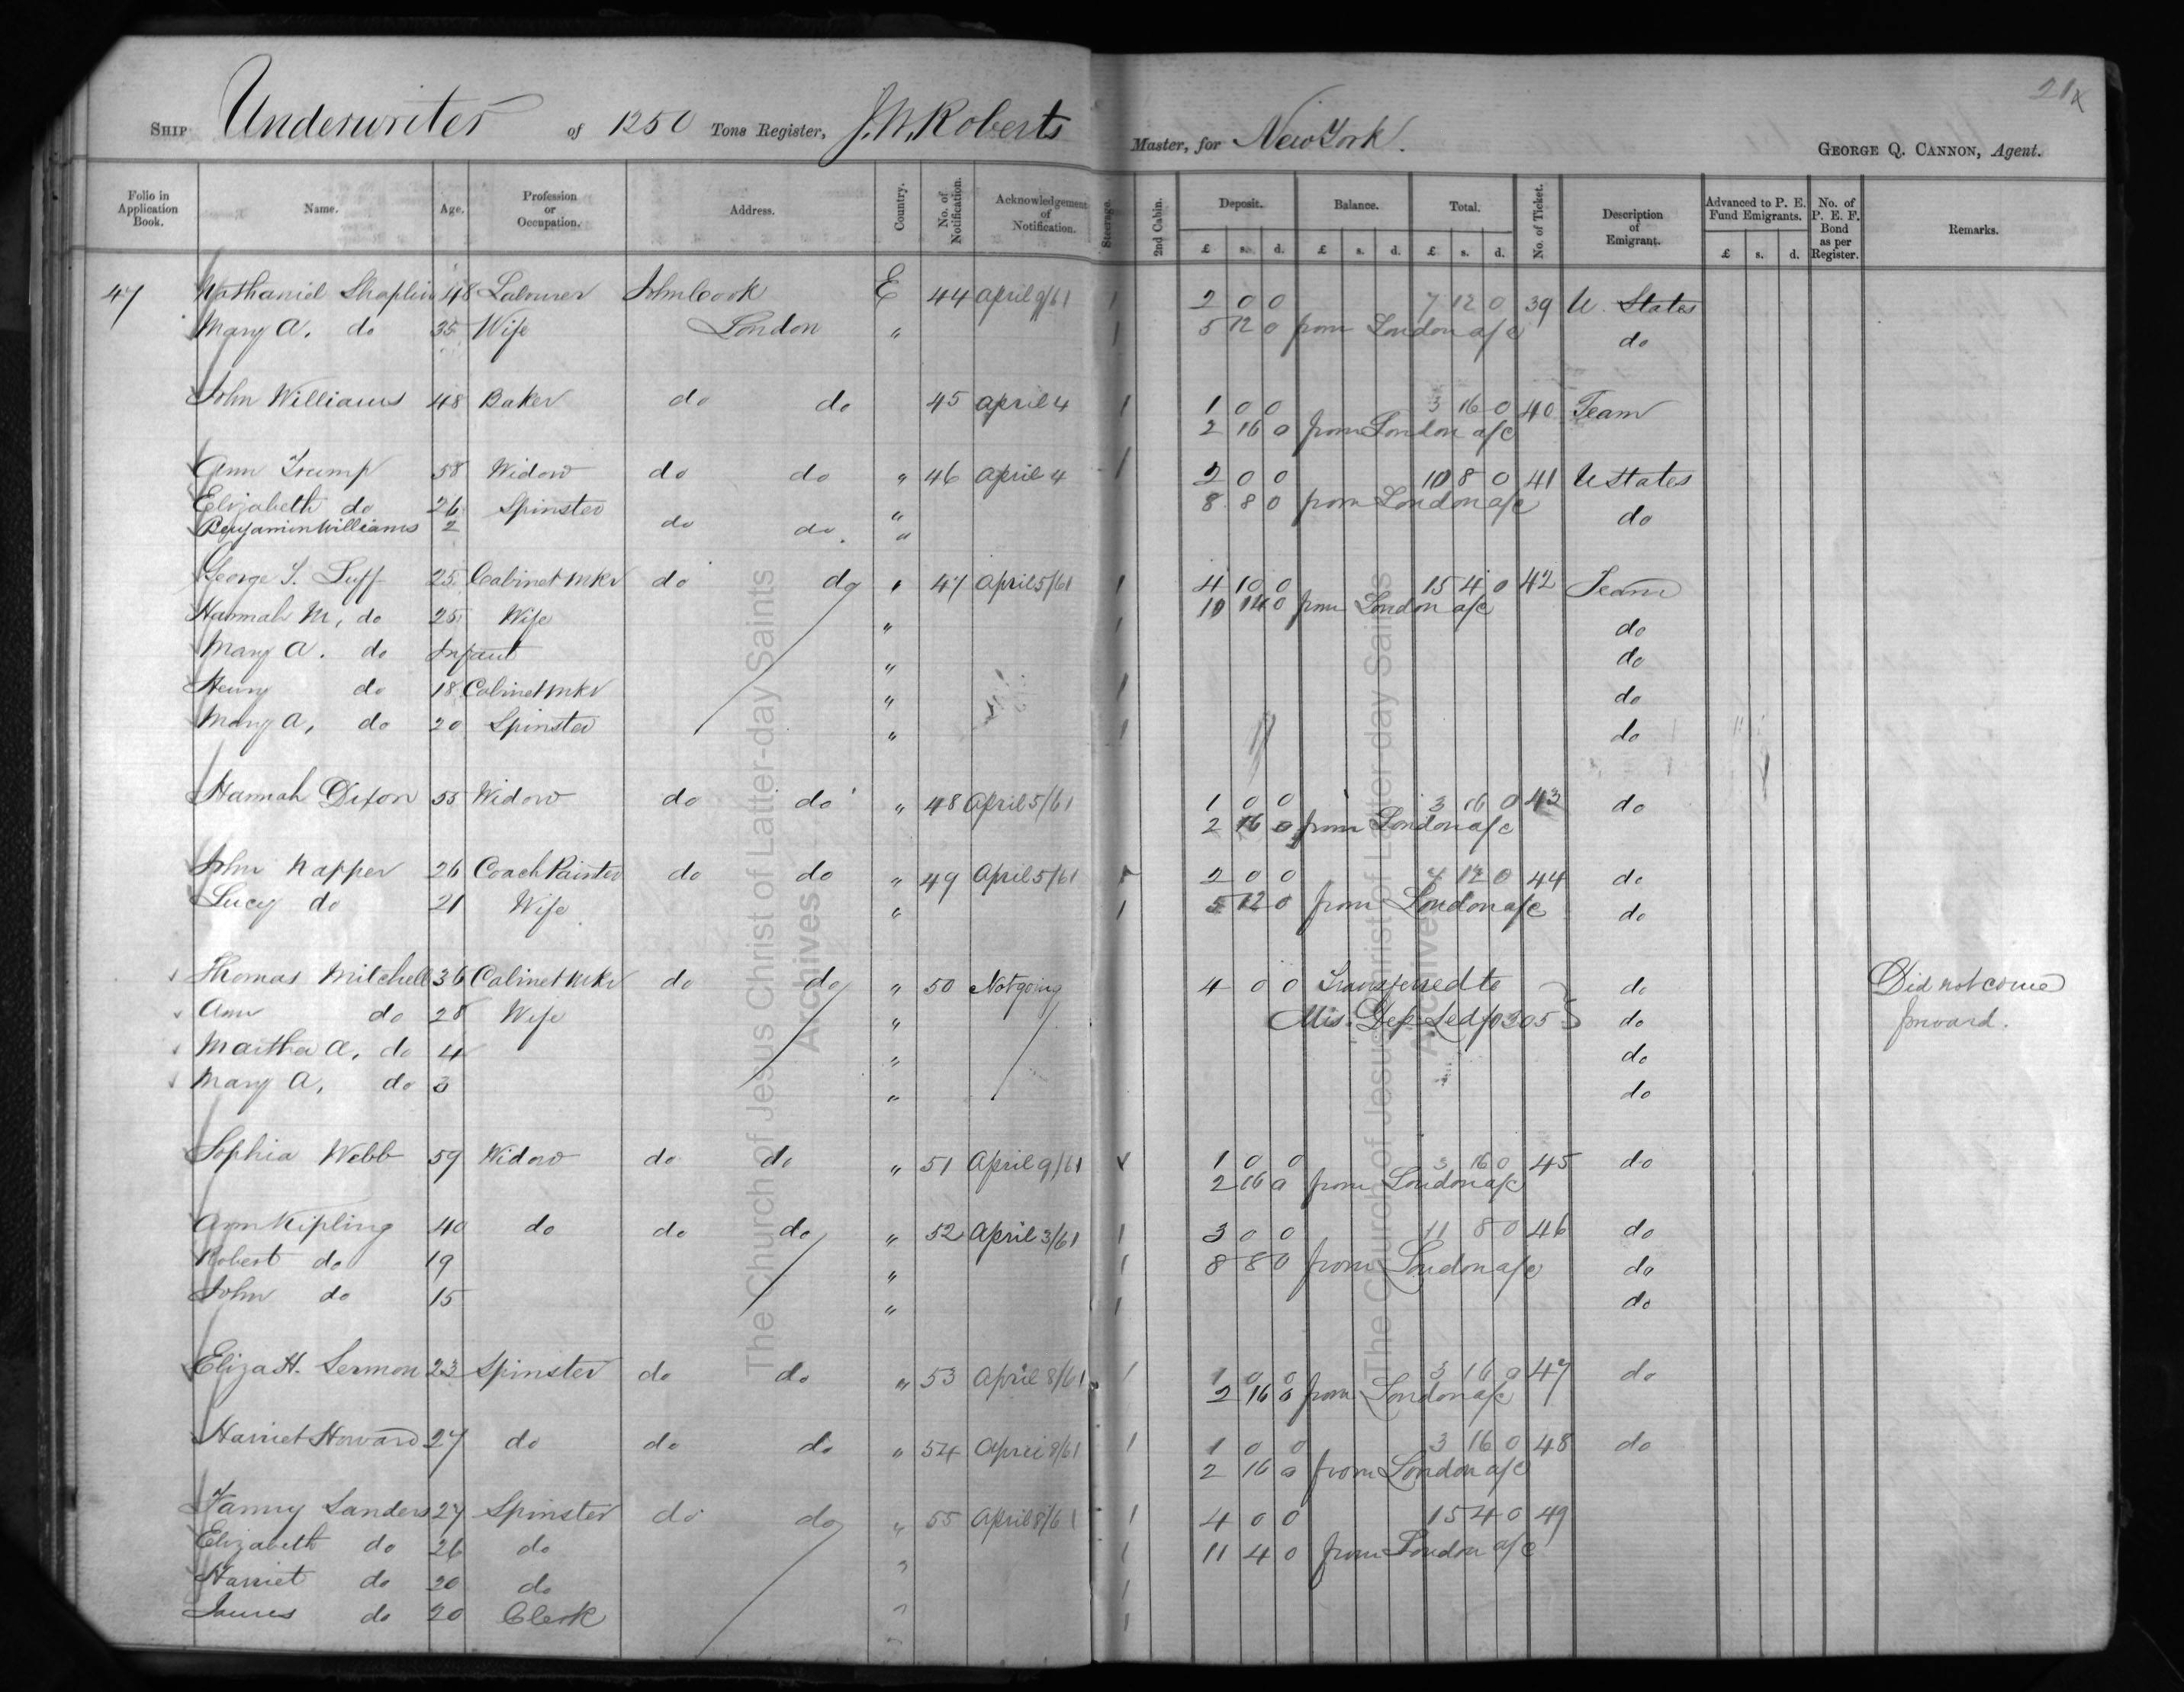 21x
SHIP Underwriter of 1250 Tons Register, J.W. Roberts Master, for New York. GEORGE Q. CANNON, Agent.
Folio in Application Book. Name. Age. Profession or Occupation. Address. Country. No. of Notification. Acknowledgement of Notification. Steerage. 2nd Cabin. Deposit. Balance. Total. No. of Ticket. Description of Emigrant. Advanced to P. E. Fund Emigrants. No. of P. E. F. Bond as per Register. Remarks.
£ s. d. £ s. d. £ s. d. £ s. d.
47 Nathaniel Shaplin 48 Labourer John Cook E 44 April 9/61 1 2 0 0 7 12 0 39 U. States
Mary A. do 35 Wife London " 1 5 12 0 from London a/c do
John Williams 48 Baker do do 45 April 4 1 1 0 0 3 16 0 40 Team
2 16 0 from London a/c
Ann Trump 58 Widow do do " 46 April 4 1 2 0 0 10 8 0 41 U States
Elizabeth do 26 Spinster " 8 8 0 from London a/c do
Benjamin Williams 2 do do. "
George T. Luff 25 Cabinet Mkr do do " 47 April 5/61 1 4 10 0 15 4 0 42 Team
Hannah M, do 25 Wife " 1 10 14 0 from London a/c do
Mary A. do Infant " do
Henry do 18 Cabinet Mkr " 1 do
Mary A, do 20 Spinster " 1 do
Hannah Dixon 55 Widow do do " 48 April 5/61 1 0 0 3 16 0 43 do
2 16 0 from London a/c
John Napper 26 Coach Painter do do " 49 April 5/61 1 2 0 0 7 12 0 44 do
Lucy do 21 Wife " 1 5 12 0 from London a/c do
Thomas Mitchell 36 Cabinet Mkr do do " 50 Not going 4 0 0 Transferred to do Did not come
Ann do 28 Wife " Mis. Dep. Led fo 305 do forward.
Martha A, do 4 " do
Mary A, do 3 " do
Sophia Webb 59 Widow do do " 51 April 9/61 1 0 0 3 16 0 45 do
2 16 0 from London a/c
Ann Kipling 40 do do do " 52 April 3/61 1 3 0 0 11 8 0 46 do
Robert do 19 " 1 8 8 0 from London a/c do
John do 15 " 1 do
Eliza H. Sermon 23 Spinster do do " 53 April 8/61 1 1 0 0 3 16 0 47 do
2 16 0 from London a/c
Harriet Howard 27 do do do " 54 April 8/61 1 1 0 0 3 16 0 48 do
2 16 0 from London a/c
Fanny Sanders 27 Spinster do do " 55 April 8/61 1 4 0 0 15 4 0 49
Elizabeth do 26 do " 1 11 4 0 from London a/c
Harriet do 20 do " 1
James do 20 Clerk " 1
The Church of Jesus Christ of Latter-day Saints
Archives
The Church of Jesus Christ of Latter-day Saints
Archives